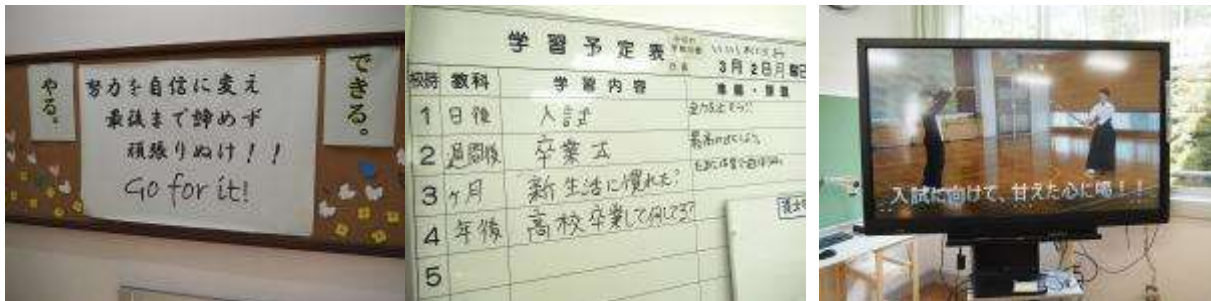 やる。
努力を自信に変え
最後まで諦めず
頑張りぬけ！！
Go for it!
できる。
学習予定表
3月2日月曜日
校時 教科 学習内容 準備・課題
1 日後 入試
2 週間後 卒業式
3 ヶ月 新生活に慣れた?
4 年後 高校卒業して何してる?
5
入試に向けて、甘えた心に喝！！